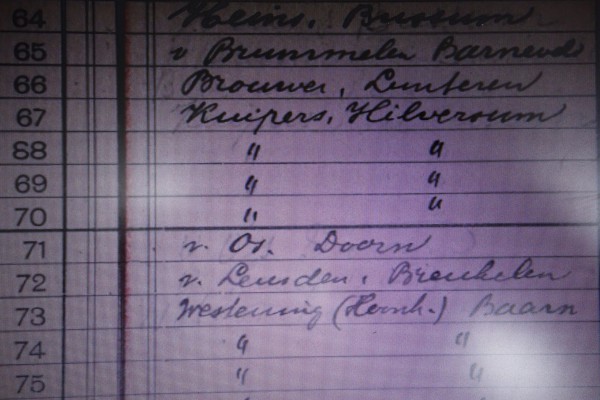 64 Heins. Bussum
65 v Brummelen Barneveld
66 Brouwer, Lunteren
67 Kuipers, Hilversum
68 " "
69 " "
70 " "
71 v. Os. Doorn
72 v. Leusden, Breukelen
73 Westening (Hoornk.) Baarn
74 " "
75 " "